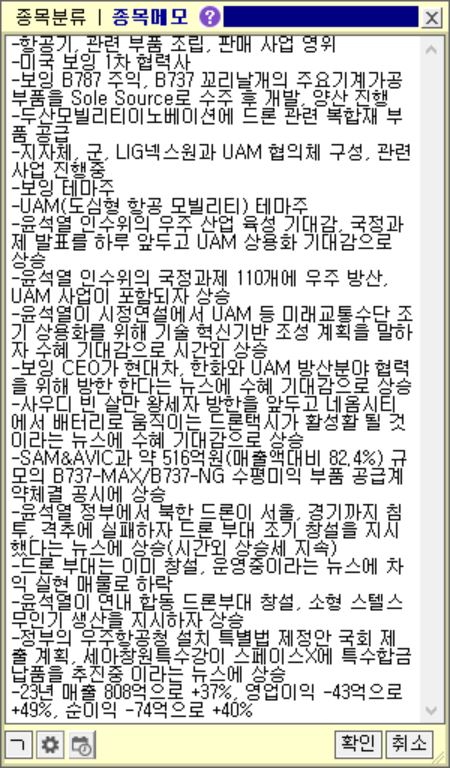 종목분류 | 종목메모 ?
-항공기, 관련 부품 조립, 판매 사업 영위
-미국 보잉 1차 협력사
-보잉 B787 주익, B737 꼬리날개의 주요기계가공
부품을 Sole Source로 수주 후 개발, 양산 진행
-두산모빌리티이노베이션에 드론 관련 복합재 부
품 공급
-지자체, 군, LIG넥스원과 UAM 협의체 구성, 관련
사업 진행중
-보잉 테마주
-UAM(도심형 항공 모빌리티) 테마주
-윤석열 인수위의 우주 산업 육성 기대감, 국정과
제 발표를 하루 앞두고 UAM 상용화 기대감으로
상승
-윤석열 인수위의 국정과제 110개에 우주 방산,
UAM 사업이 포함되자 상승
-윤석열이 시정연설에서 UAM 등 미래교통수단 조
기 상용화를 위해 기술 혁신기반 조성 계획을 말하
자 수혜 기대감으로 시간외 상승
-보잉 CEO가 현대차, 한화와 UAM 방산분야 협력
을 위해 방한 한다는 뉴스에 수혜 기대감으로 상승
-사우디 빈 살만 왕세자 방한을 앞두고 네옴시티
에서 배터리로 움직이는 드론택시가 활성활 될 것
이라는 뉴스에 수혜 기대감으로 상승
-SAM&AVIC과 약 516억원(매출액대비 82.4%) 규
모의 B737-MAX/B737-NG 수평미익 부품 공급계
약체결 공시에 상승
-윤석열 정부에서 북한 드론이 서울, 경기까지 침
투, 격추에 실패하자 드론 부대 조기 창설을 지시
했다는 뉴스에 상승(시간외 상승세 지속)
-드론 부대는 이미 창설, 운영중이라는 뉴스에 차
익 실현 매물로 하락
-윤석열이 연내 합동 드론부대 창설, 소형 스텔스
무인기 생산을 지시하자 상승
-정부의 우주항공청 설치 특별법 제정안 국회 제
출 계획, 세아창원특수강이 스페이스X에 특수합금
납품을 추진중 이라는 뉴스에 상승
-23년 매출 808억으로 +37%, 영업이익 -43억으로
+49%, 순이익 -74억으로 +40%
ㄱ 확인 취소